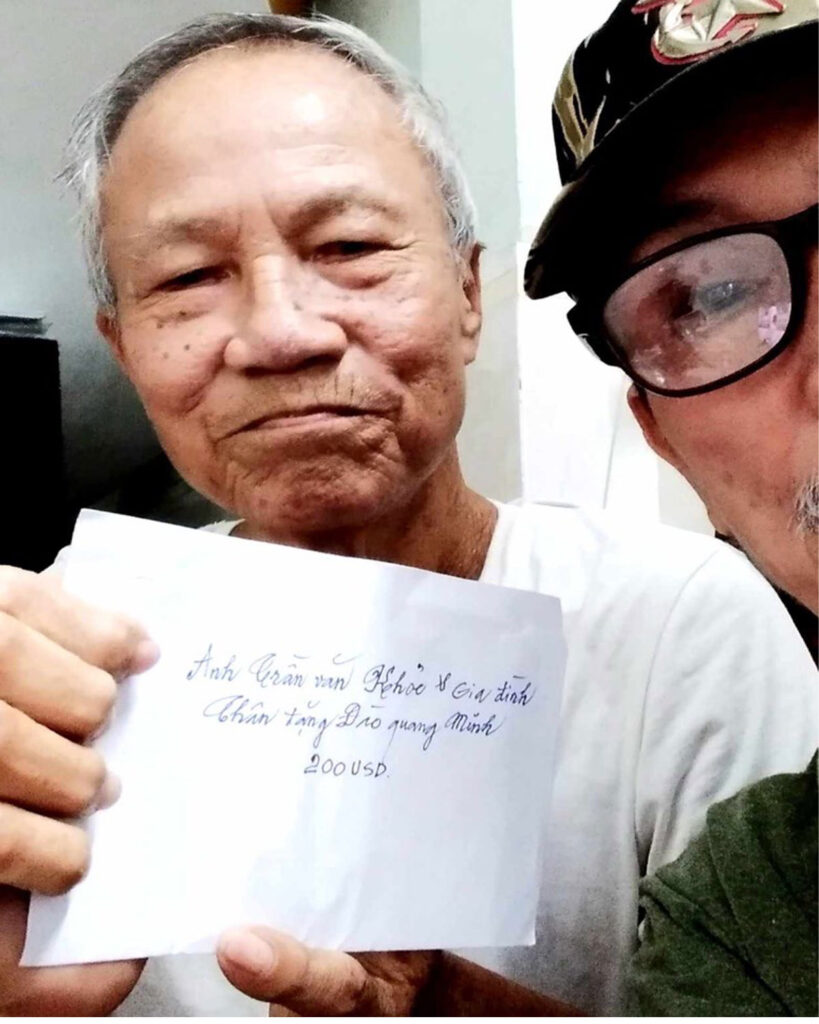 Anh Trần văn Khỏe & Gia đình
Thân tặng Đào quang Minh
200 USD.